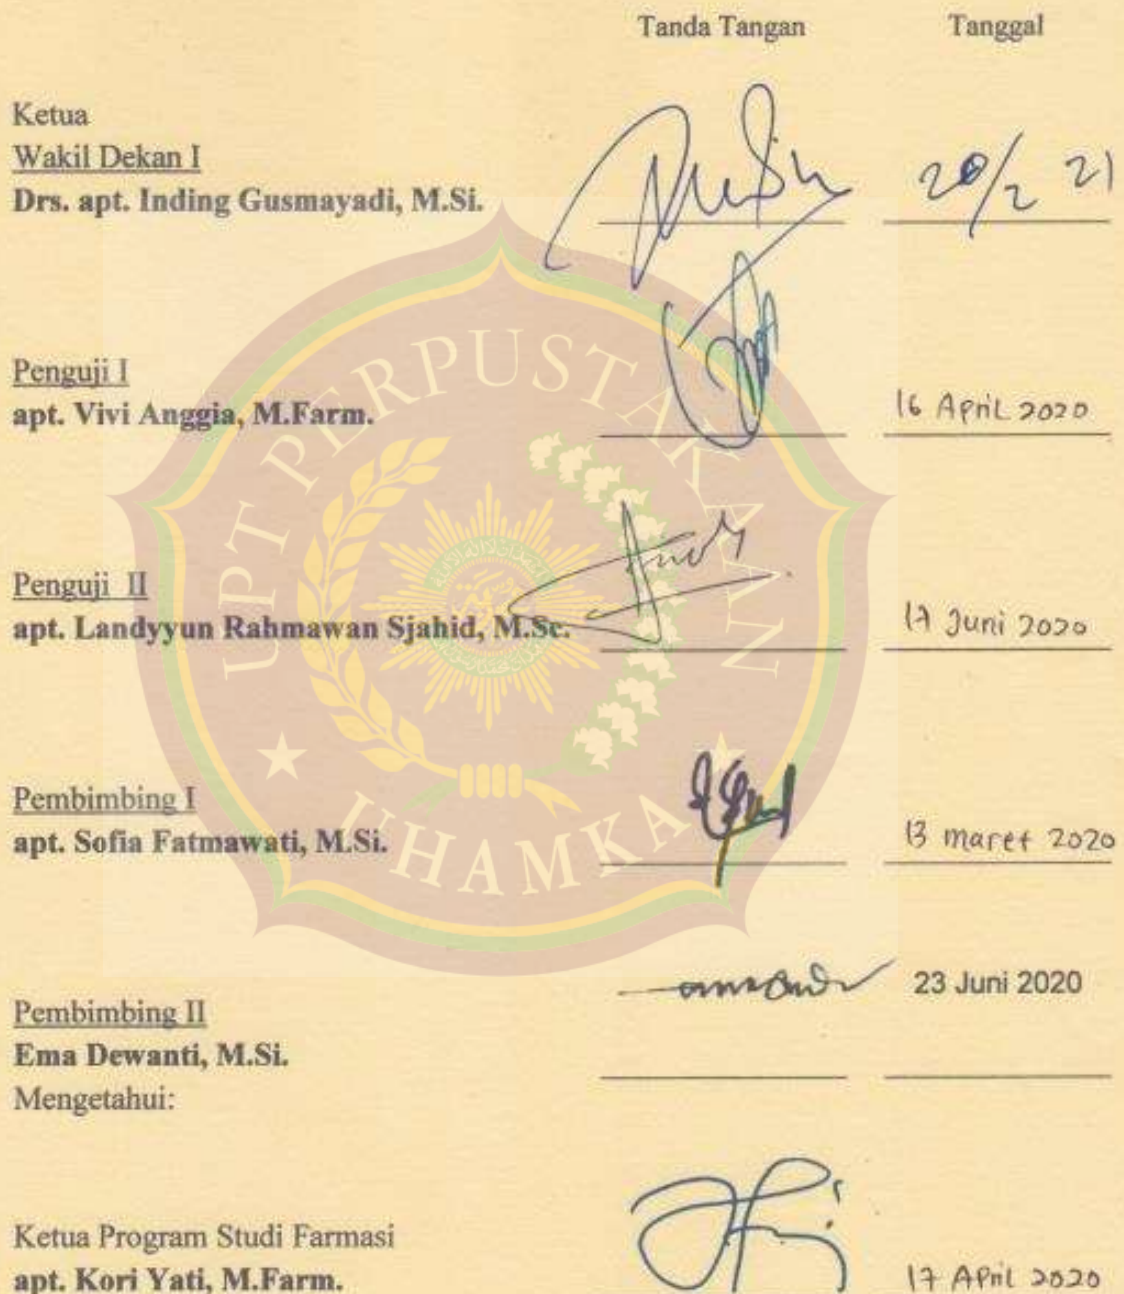 Tanda Tangan Tanggal
Ketua
Wakil Dekan I
Drs. apt. Inding Gusmayadi, M.Si.
20/2 21
Penguji I
apt. Vivi Anggia, M.Farm.
16 April 2020
Penguji II
apt. Landyyun Rahmawan Sjahid, M.Sc.
17 Juni 2020
Pembimbing I
apt. Sofia Fatmawati, M.Si.
13 maret 2020
23 Juni 2020
Pembimbing II
Ema Dewanti, M.Si.
Mengetahui:
Ketua Program Studi Farmasi
apt. Kori Yati, M.Farm.
17 April 2020
UPT PERPUSTAKAAN
UHAMKA